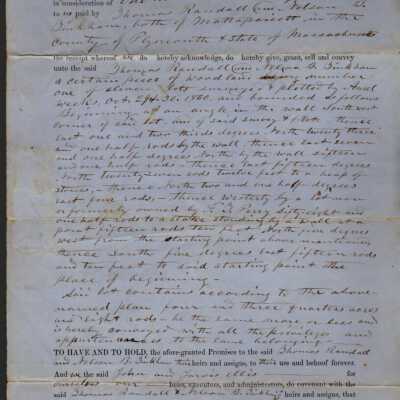 in consideration of
to us paid by Thomas Randall and Nelson B.
Pinkham, both of Mattapoisett, in the
County of Plymouth & State of Massachusetts
the receipt whereof we do hereby acknowledge, do hereby give, grant, sell and convey
unto the said Thomas Randall and Nelson B. Pinkham
a certain piece of woodland being number
one of eleven lots surveyed & plotted by
Weeks, Oct. 29 & 30. 1860. and bounded as follows
Beginning at an angle in the wall Southwest
corner of said lot one of said survey & plot thence
East one and two thirds degrees North twenty three
and one half rods by the wall, thence East seven
and one half degrees North by the wall sixteen
and one half rods - thence East fifteen degrees
North twenty-seven rods twelve feet to a heap of
stones, - thence North two and one half degrees
East four rods. - thence Westerly by a lot now
or formerly owned by fifty eight and
one half rods to a stake standing by a wall at a
point fifteen rods ten feet North five degrees
West from the starting point above mentioned
thence South five degrees East fifteen rods
and ten feet to said starting point the
place of beginning -
Said lot contains according to the above
named plan four and three quarters acres
and eight rods - be the same more or less and
is hereby conveyed with all the privileges and
appurtenances to the same belonging
TO HAVE AND TO HOLD, the afore-granted Premises to the said Thomas Randall
and Nelson B. Pinkham their heirs and assigns, to their use and behoof forever.
And we the said John and Jarvis Ellis for
ourselves our heirs, executors, and administrators, do covenant with the
said Thomas Randall & Nelson B. Pinkham heirs and assigns, that